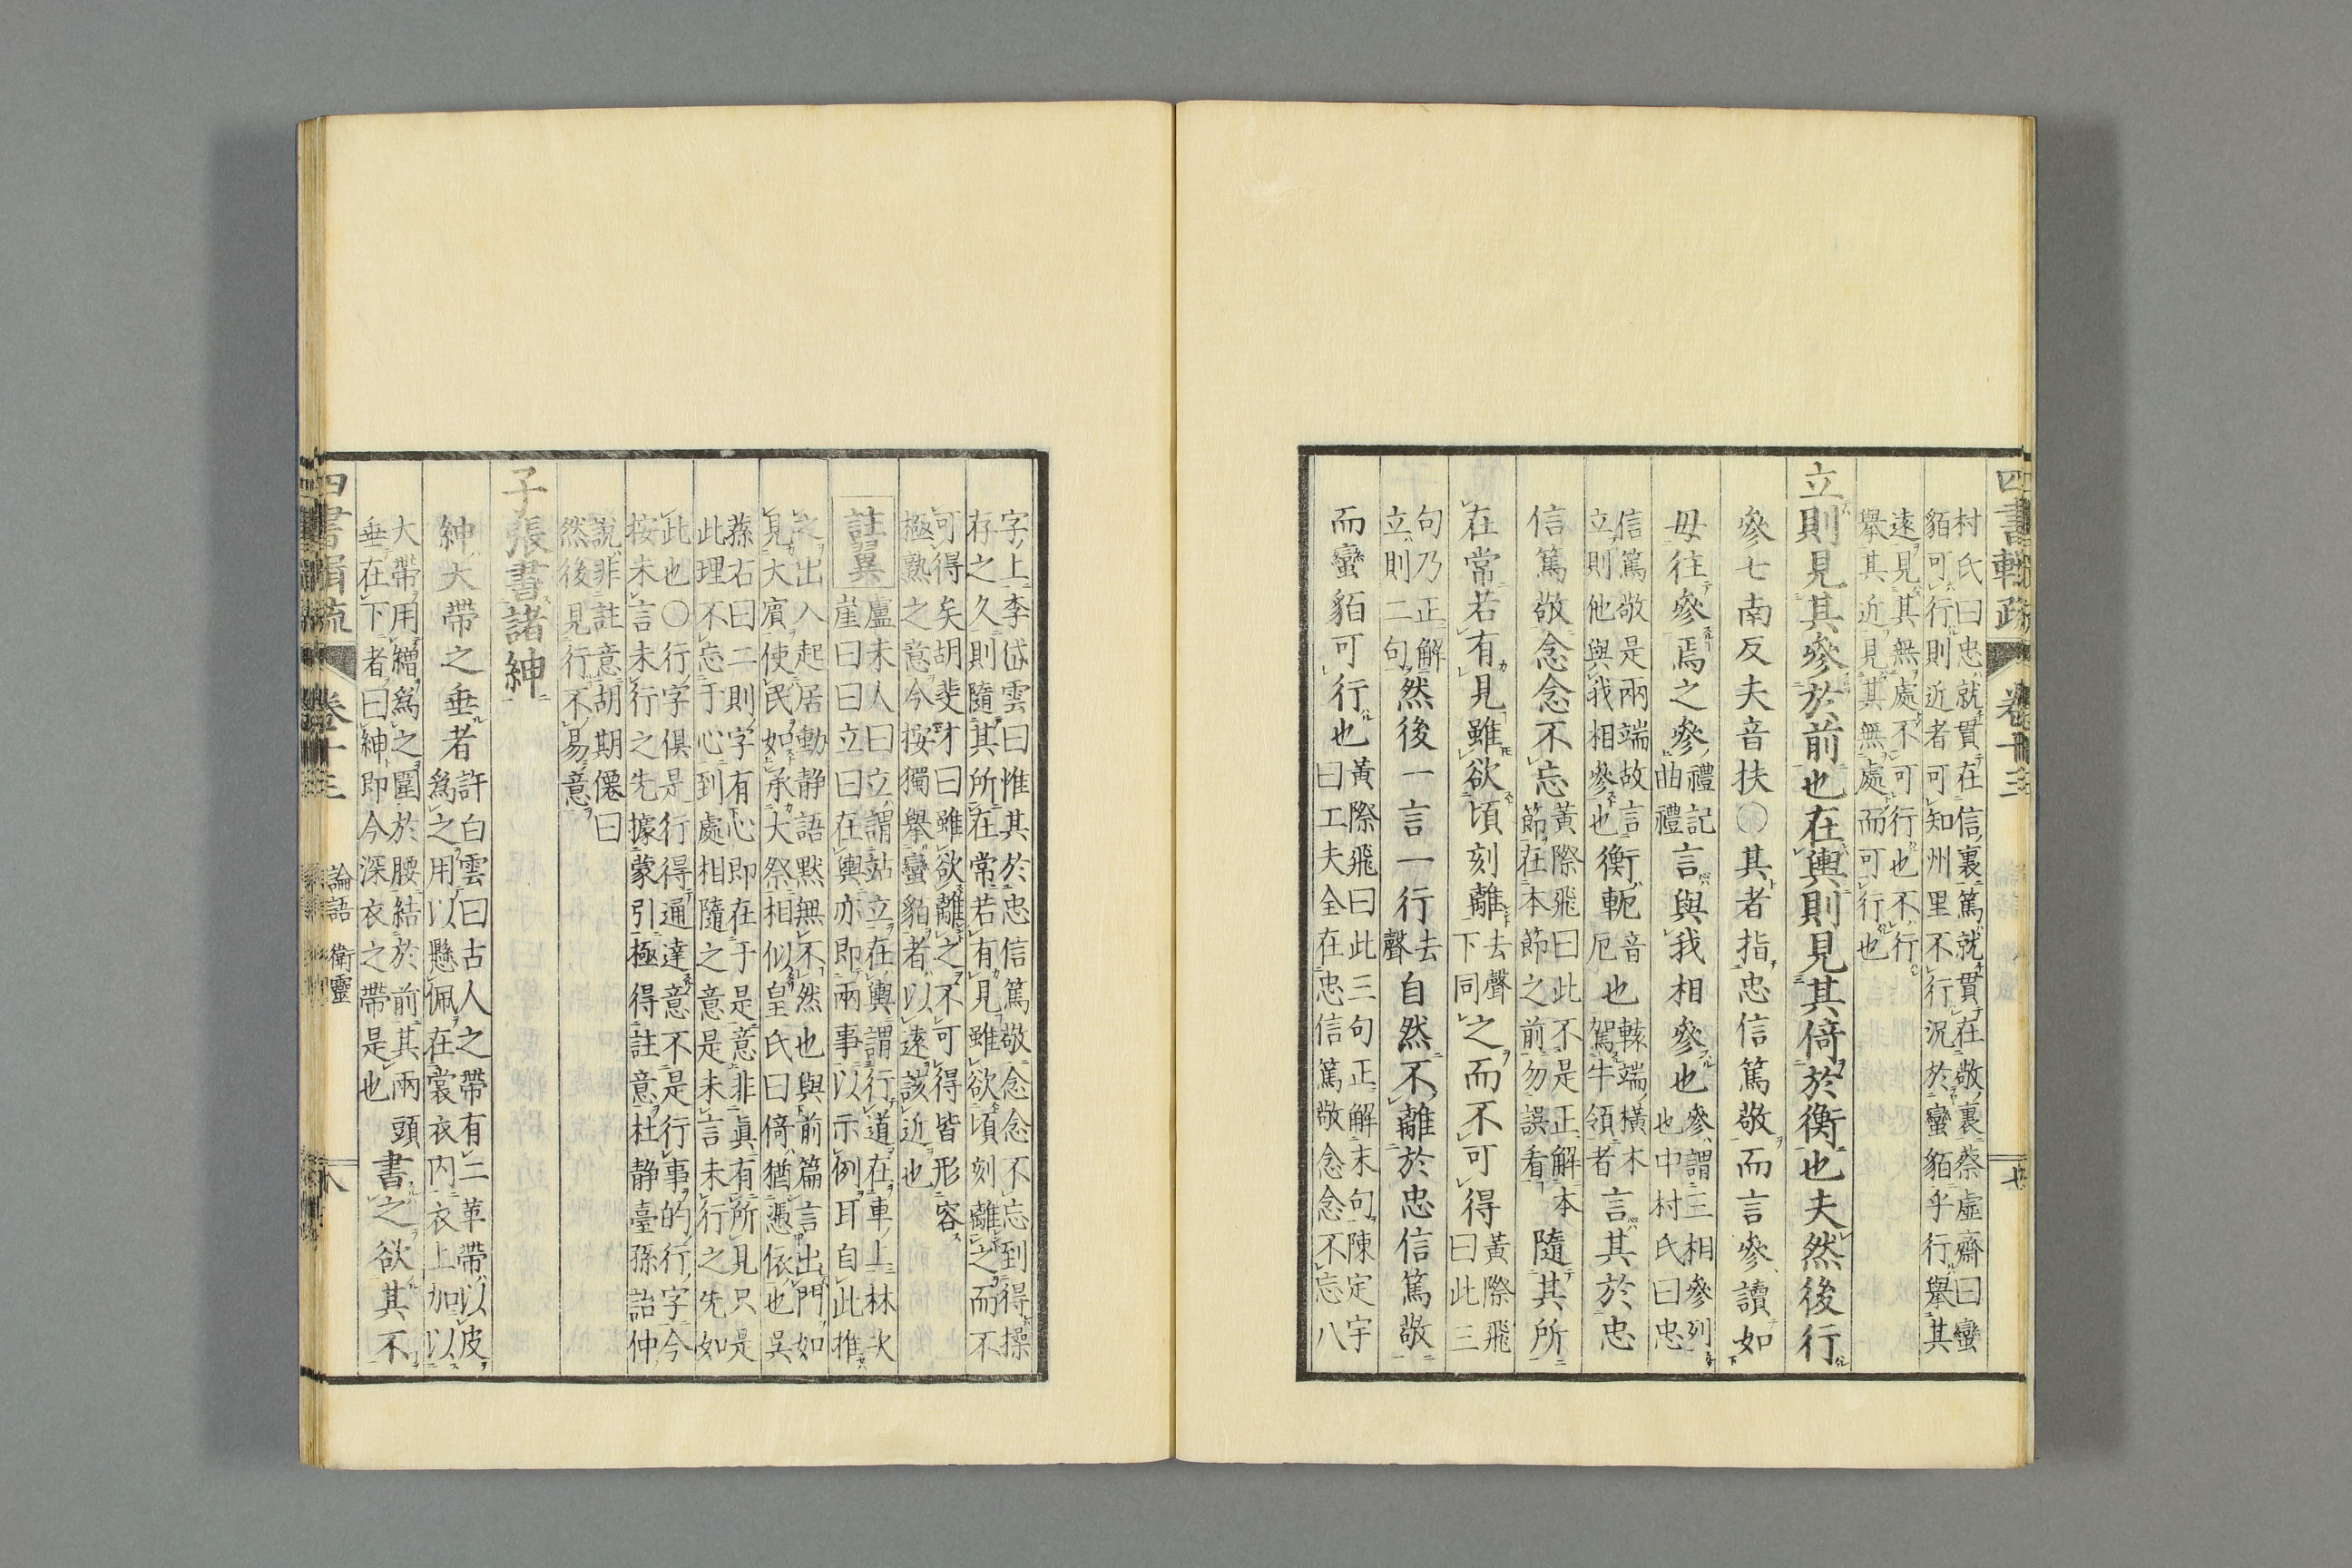 四書輯疏 卷十三 七
村氏曰忠就貫在信裏篤就貫在敬裏蔡虛齋曰蠻
貊可行則近者可知州里不行況於蠻貊乎行舉其
遠見其無處不可行也不行
舉其近見其無處而可行也
立則見其參於前也在輿則見其倚於衡也夫然後行
參七南反夫音扶〇其者指忠信篤敬而言參讀如
毋往參焉之參禮記
曲禮
言與我相參也參謂三相參列
也中村氏曰忠
信篤敬是兩端故言
立則他與我相參也
衡軛音
厄
也轅端橫木
駕牛領者
言其於忠
信篤敬念念不忘黃際飛曰此不是正解本
節在本節之前勿誤看
隨其所
在常若有見雖欲頃刻離去聲
下同
之而不可得黃際飛
曰此三
句乃正解
立則二句
然後一言一行去
聲
自然不離於忠信篤敬
而蠻貊可行也黃際飛曰此三句正解末句陳定宇
曰工夫全在忠信篤敬念念不忘八
字上李岱雲曰惟其於忠信篤敬念念不忘到得操
存之久則隨其所在常若有見雖欲頃刻離之而不
可得矣胡斐才曰雖欲離之不可得皆形容
極熟之意今按獨舉蠻貊者以遠該近也
註翼
盧未人曰立謂站立在輿謂行道在車上林次
崖曰曰立曰在輿亦即兩事以示例耳自此推
之出入起居動靜語默無不然也與前篇言出門如
見大賓使民如承大祭相似皇氏曰倚猶憑依也吳
蓀右曰二則字有心即在于是意非眞有所見只是
此理不忘于心到處相隨之意是未言未行之先如
此也〇行字俱是行得通達意不是行事的行字今
按未言未行之先據蒙引極得註意杜靜臺孫詒仲
說非註意胡期僊曰
然後見行不易意
子張書諸紳
紳大帶之垂者許白雲曰古人之帶有二革帶以皮
爲之用以懸佩在裳衣内衣上加以
大帶用繒爲之圍於腰結於前其兩頭
垂在下者曰紳即今深衣之帶是也
書之欲其不
四書輯疏 卷十三 論語 衛靈 八